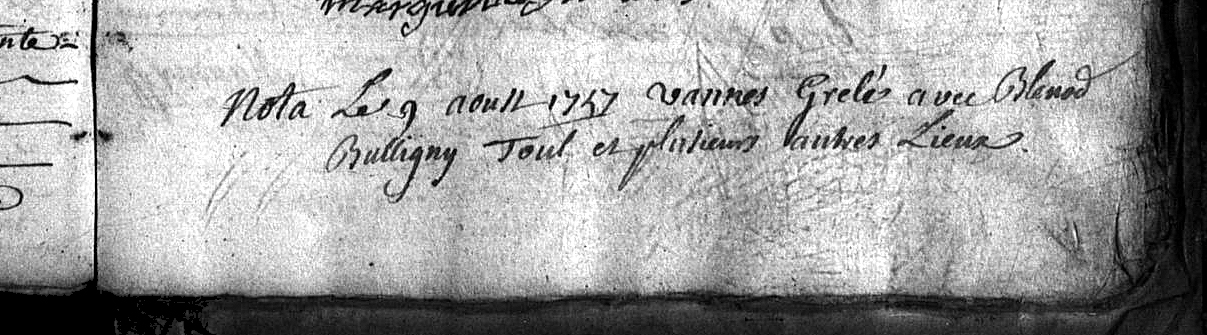 nte
Nota Le 9 aoust 1757 vannes Grelé avec Blenod
Bulligny Toul et plusieurs autres Lieux.